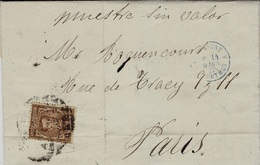 muestra sin valor
Mr Hoquencourt
Rue de Tracy 9 y 11
Paris.